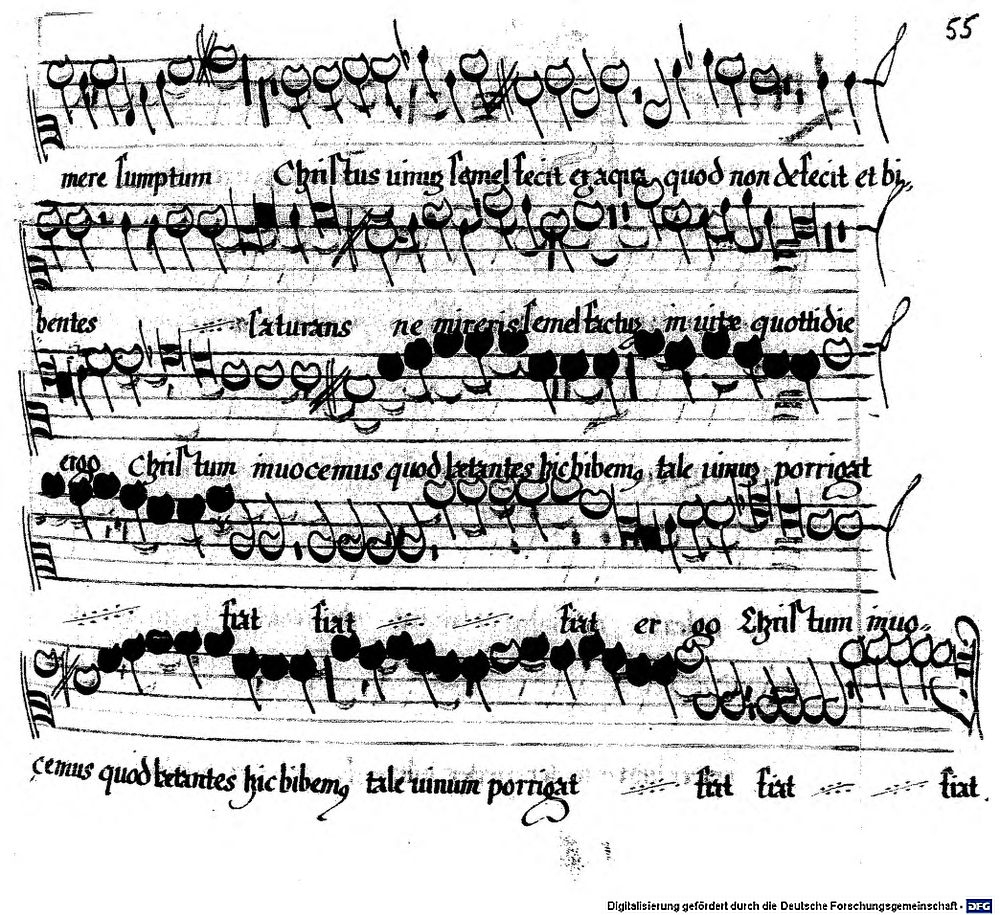 55
mere sumptum Christus uinū semel fecit ex aqua quod non defecit et bi„
bentes saturans ne mireris semel factū in uitæ quottidie
ergo Christum inuocemus quod lætantes hic bibemꝰ tale uinū porrigat
fiat fiat fiat er go Christum inuo„
cemus quod lætantes hic bibemꝰ tale uinum porrigat fiat fiat fiat.
Digitalisierung gefördert durch die Deutsche Forschungsgemeinschaft - DFG